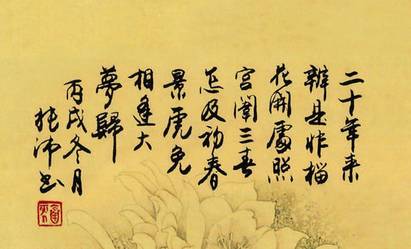 二十年来
辨是非榴
花開處照
宮闈三春
怎及初春
景虎兔
相逢大
夢歸
丙戌冬月
沛书